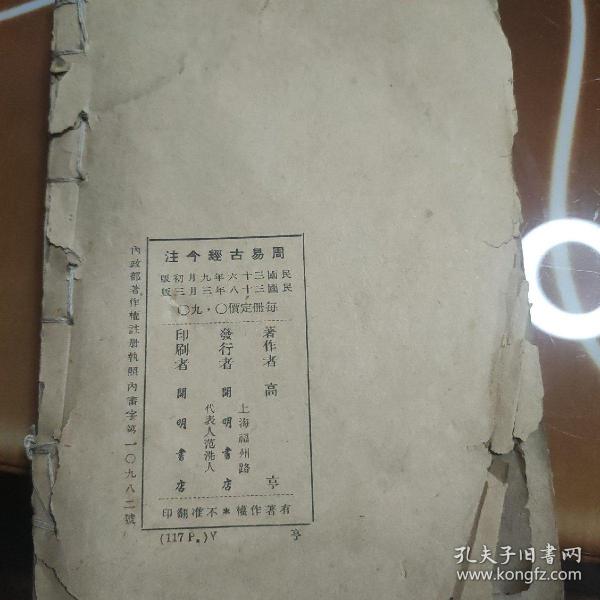 周易古經今注
民國三十六年九月初版
民國三十八年三月三版
每冊定價〇·九〇
著作者 高亨
上海福州路
發行者 開明書店
代表人范洗人
印刷者 開明書店
有著作權*不准翻印
內政部著作權註冊執照內審字第一〇九八二號
(117 P.) Y
亨
孔夫子旧书网
www.kongfz.com